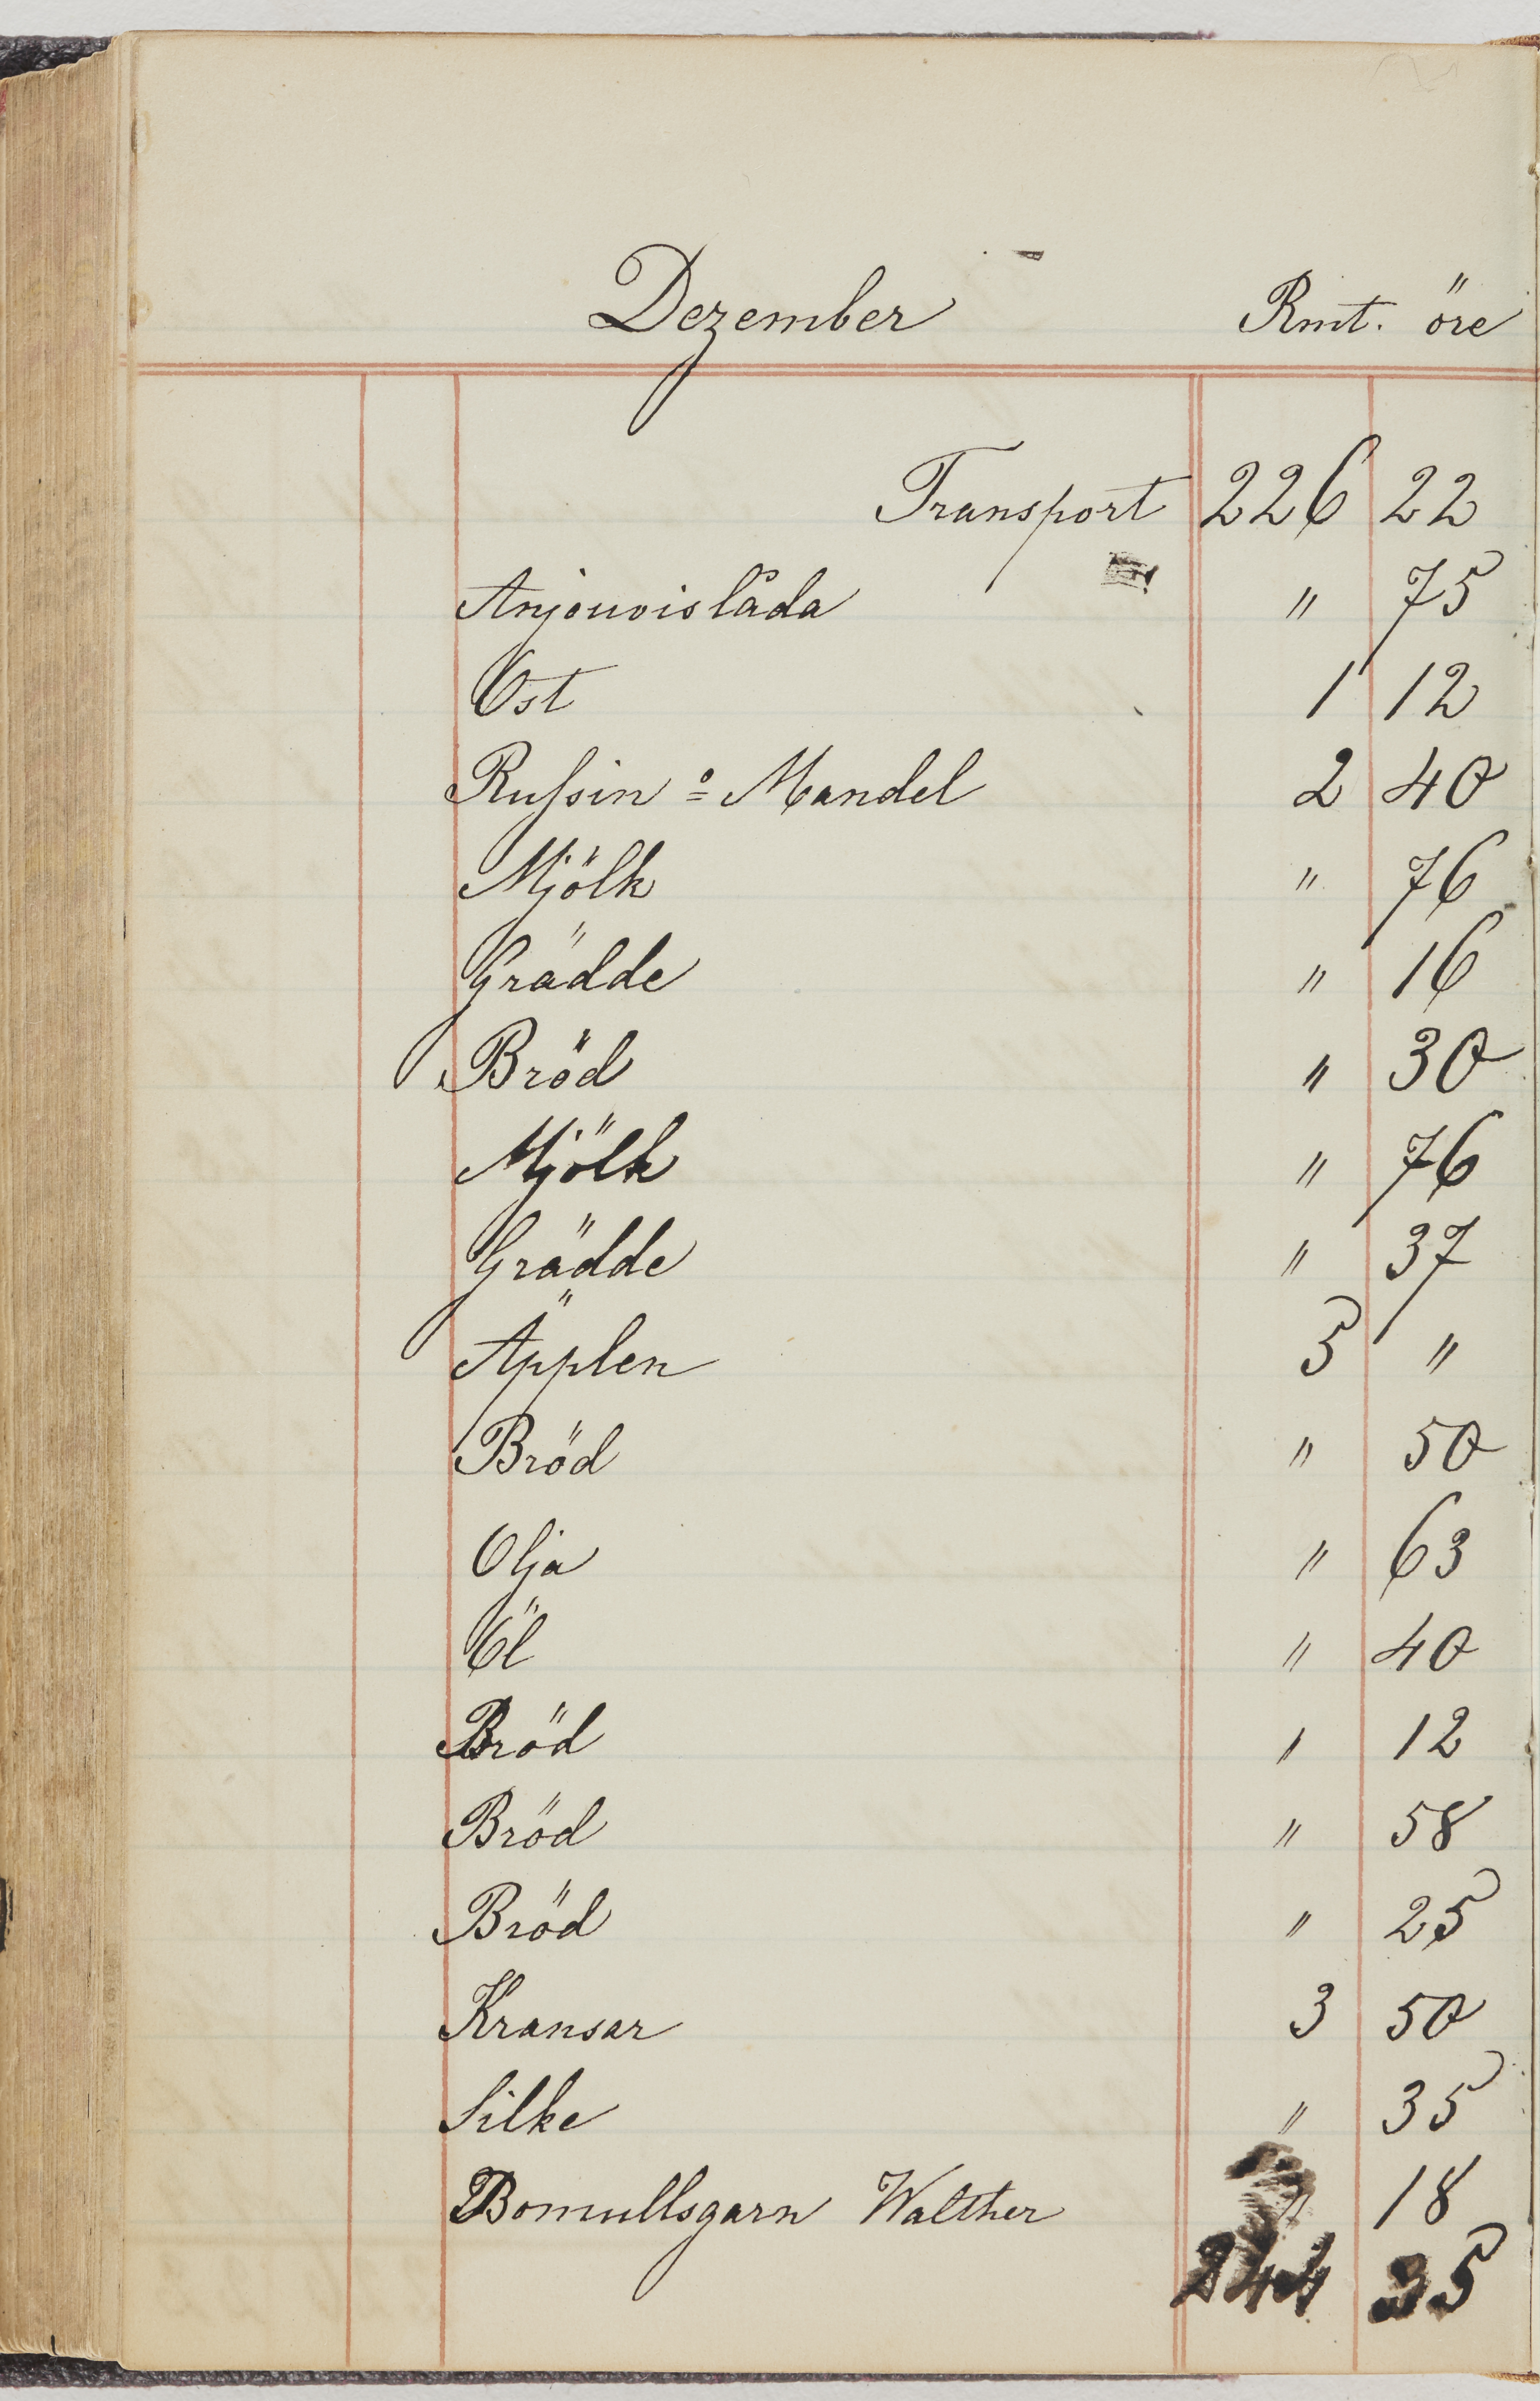 Dezember Rmt. öre
Transport 226 22
Anjouvislåda " 75
Ost 1 12
Russin o Mandel 2 40
Mjölk " 76
Grädde " 16
Bröd " 30
Mjölk " 76
Grädde " 37
Äpplen 5 "
Bröd " 50
Olja " 63
Öl " 40
Bröd " 12
Bröd " 58
Bröd " 25
Kransar 3 50
Silke " 35
Bomullsgarn Walther " 18
244 35